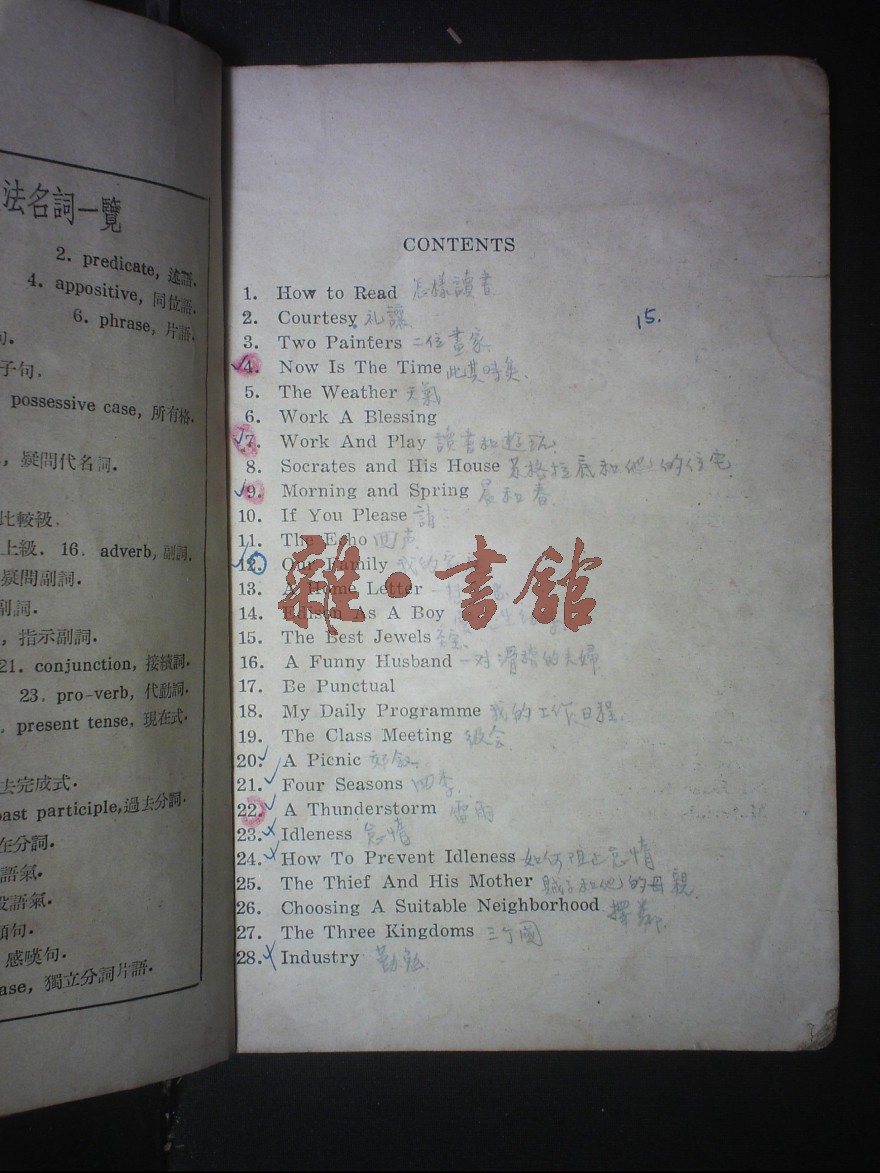 法名詞一覽
2. predicate, 述語.
4. appositive, 同位語.
6. phrase, 片語.
句.
子句.
possessive case, 所有格.
, 疑問代名詞.
比較級.
上級. 16. adverb, 副詞.
疑問副詞.
副詞.
, 指示副詞.
21. conjunction, 接續詞.
23. pro-verb, 代動詞.
. present tense, 現在式.
去完成式.
past participle, 過去分詞.
在分詞.
語氣.
語氣.
句.
感嘆句.
ase, 獨立分詞片語.
CONTENTS
1. How to Read 怎樣讀書
2. Courtesy 礼讓
15.
3. Two Painters 二位畫家
4. Now Is The Time 此其時矣.
5. The Weather 天氣
6. Work A Blessing
7. Work And Play 讀書和遊玩
8. Socrates and His House 苏格拉底和他的住宅
9. Morning and Spring 晨和春
10. If You Please 請
11. The Echo 回声
12. Our Family 我的家
13. A Home Letter
14. Edison As A Boy
15. The Best Jewels
16. A Funny Husband 一对滑稽的夫婦
17. Be Punctual
18. My Daily Programme 我的工作日程.
19. The Class Meeting 级会
20. A Picnic 郊
21. Four Seasons 四季
22. A Thunderstorm 雷雨
23. Idleness 怠惰
24. How To Prevent Idleness 如何阻止怠惰
25. The Thief And His Mother 賊子和他的母親
26. Choosing A Suitable Neighborhood 擇鄰
27. The Three Kingdoms 三个國
28. Industry 勤勉
雜·書館